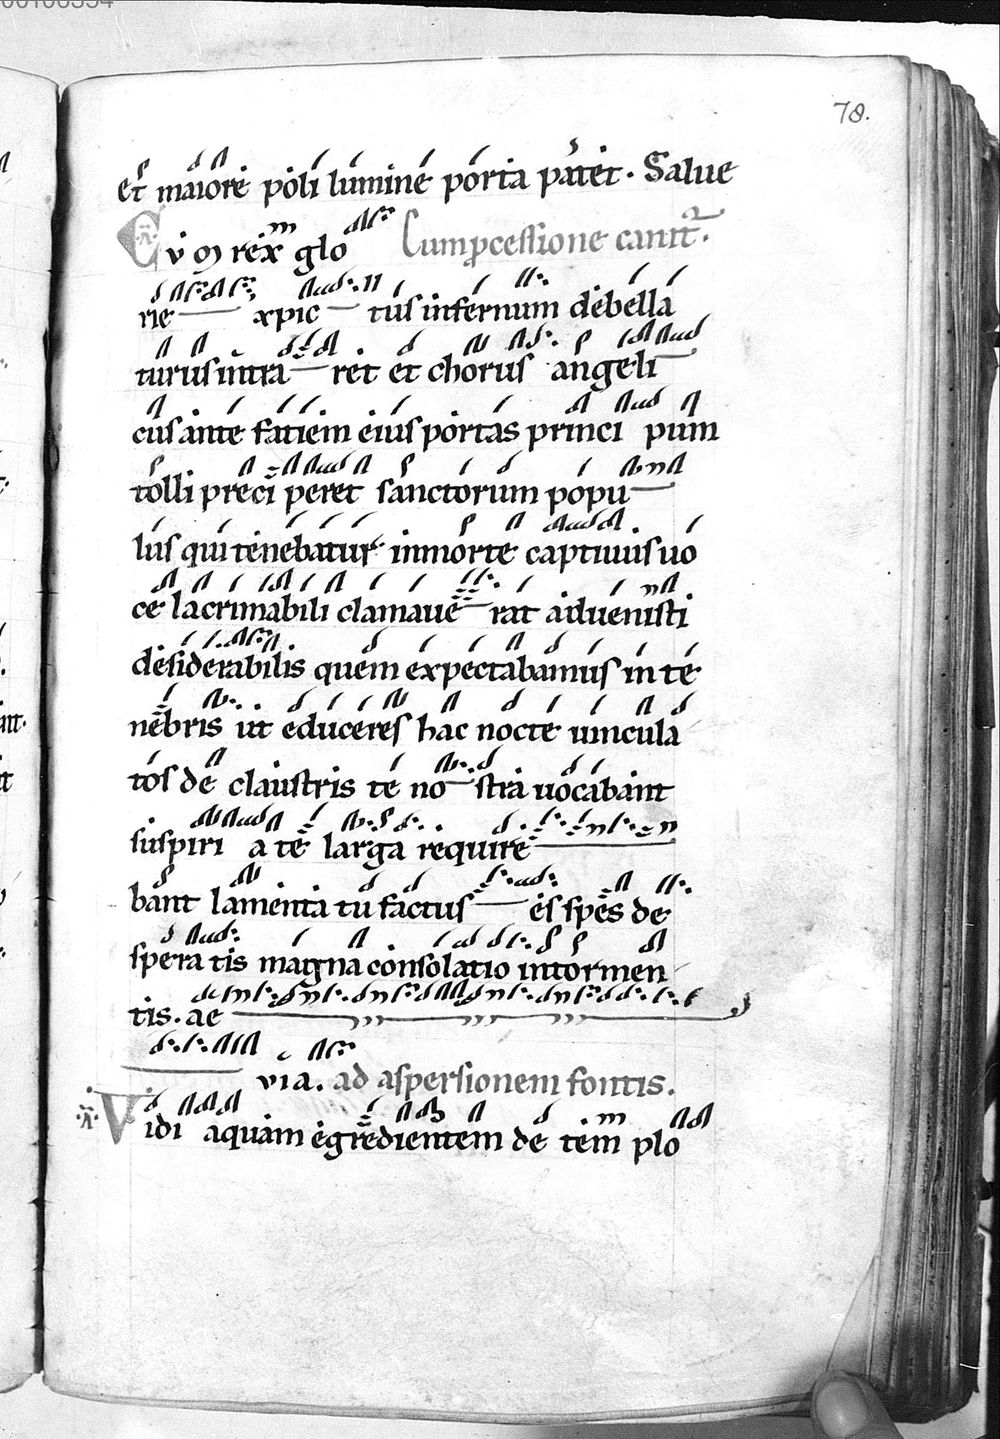 78.
et maiore poli lumine porta patet. Salue
Cum p̱cessione canit᷑.
Cv ꝳ rex glo
rie xpic tus infernum debella
turus intra ret et chorus angeli
cus ante fatiem eius portas princi pum
tolli preci peret sanctorum popu
lus qui tenebatur inmorte captiuus uo
ce lacrimabili clamaue rat aduenisti
desiderabilis quem expectabamus in te
nebris ut educeres hac nocte uincula
tos de claustris te no stra uocabant
suspiri a te larga require
bant lamenta tu factus es spes de
spera tis magna consolatio intormen
tis. ae
via. ad aspersionem fontis.
Vidi aquam egredientem de tem plo